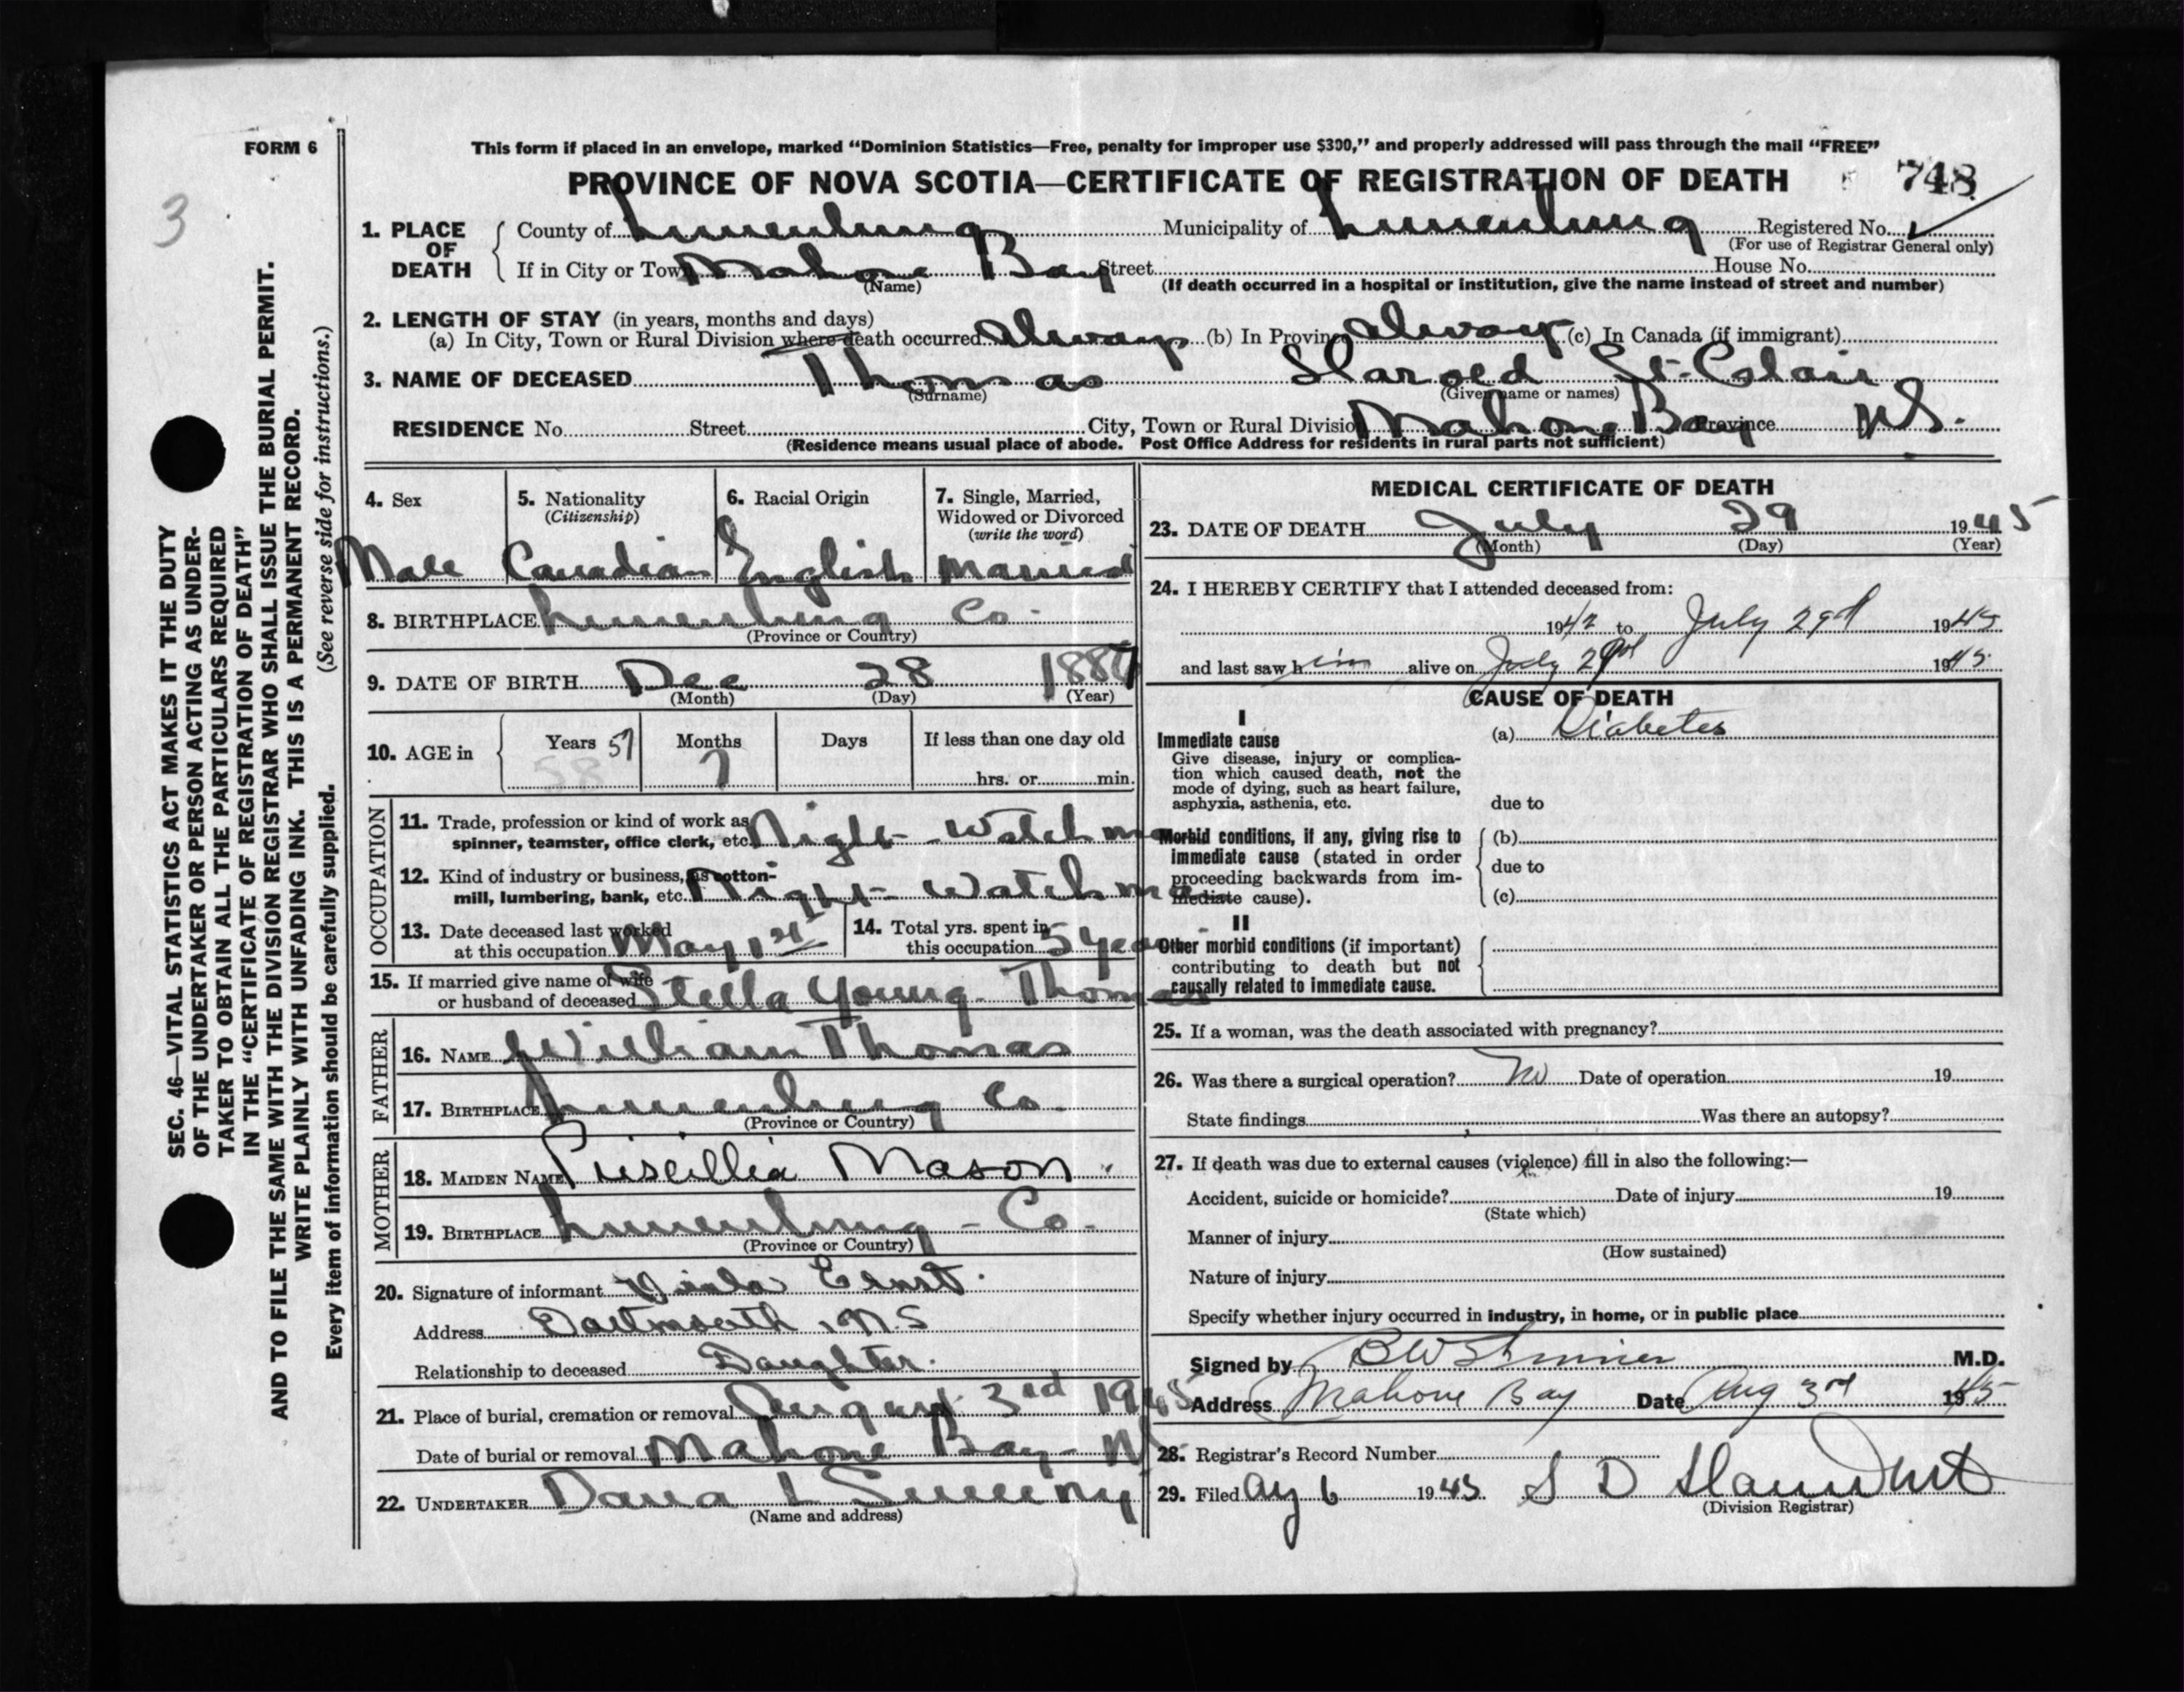 FORM 6
3
This form if placed in an envelope, marked “Dominion Statistics—Free, penalty for improper use $300,” and properly addressed will pass through the mail “FREE”
PROVINCE OF NOVA SCOTIA—CERTIFICATE OF REGISTRATION OF DEATH 748
1. PLACE OF DEATH County of Lunenburg Municipality of Lunenburg Registered No.
(For use of Registrar General only)
If in City or Town Mahone Bay Street House No.
(Name) (If death occurred in a hospital or institution, give the name instead of street and number)
2. LENGTH OF STAY (in years, months and days)
(a) In City, Town or Rural Division where death occurred Always (b) In Province Always (c) In Canada (if immigrant)
3. NAME OF DECEASED Thomas Harold St. Clair
(Surname) (Given name or names)
RESIDENCE No. Street City, Town or Rural Division Mahone Bay Province N.S.
(Residence means usual place of abode. Post Office Address for residents in rural parts not sufficient)
4. Sex 5. Nationality 6. Racial Origin 7. Single, Married,
(Citizenship) Widowed or Divorced
(write the word)
Male Canadian English Married
8. BIRTHPLACE Lunenburg Co.
(Province or Country)
9. DATE OF BIRTH Dec 28 1887
(Month) (Day) (Year)
10. AGE in Years 57 Months Days If less than one day old
58 7 hrs. or min.
OCCUPATION
11. Trade, profession or kind of work as
spinner, teamster, office clerk, etc. Night-Watchma
12. Kind of industry or business, as cotton-
mill, lumbering, bank, etc. Night-Watchma
13. Date deceased last worked
at this occupation May 1st
14. Total yrs. spent in
this occupation 5 years
15. If married give name of wife
or husband of deceased Stella Young Thomas
FATHER
16. NAME William Thomas
17. BIRTHPLACE Lunenburg Co.
(Province or Country)
MOTHER
18. MAIDEN NAME Priscillia Mason
19. BIRTHPLACE Lunenburg - Co.
(Province or Country)
20. Signature of informant Viola Ernst.
Address Dartmouth, N.S
Relationship to deceased Daughter.
21. Place of burial, cremation or removal August 3rd 1945
Date of burial or removal Mahone Bay - N
22. UNDERTAKER Dana L Sweeny
(Name and address)
MEDICAL CERTIFICATE OF DEATH
23. DATE OF DEATH July 29 1945
(Month) (Day) (Year)
24. I HEREBY CERTIFY that I attended deceased from:
1942 to July 29d 1945
and last saw him alive on July 29d 1945
CAUSE OF DEATH
I
Immediate cause
Give disease, injury or complica-
tion which caused death, not the
mode of dying, such as heart failure,
asphyxia, asthenia, etc.
(a) Diabetes
due to
Morbid conditions, if any, giving rise to
immediate cause (stated in order
proceeding backwards from im-
mediate cause).
(b)
due to
(c)
II
Other morbid conditions (if important)
contributing to death but not
causally related to immediate cause.
25. If a woman, was the death associated with pregnancy?
26. Was there a surgical operation? No Date of operation 19
State findings Was there an autopsy?
27. If death was due to external causes (violence) fill in also the following:—
Accident, suicide or homicide? Date of injury 19
(State which)
Manner of injury
(How sustained)
Nature of injury
Specify whether injury occurred in industry, in home, or in public place
Signed by M.D.
Address Mahone Bay Date Aug 3rd 1945
28. Registrar's Record Number
29. Filed Aug 6 1945 S D
(Division Registrar)
SEC. 46—VITAL STATISTICS ACT MAKES IT THE DUTY
OF THE UNDERTAKER OR PERSON ACTING AS UNDER-
TAKER TO OBTAIN ALL THE PARTICULARS REQUIRED
IN THE “CERTIFICATE OF REGISTRATION OF DEATH”
AND TO FILE THE SAME WITH THE DIVISION REGISTRAR WHO SHALL ISSUE THE BURIAL PERMIT.
WRITE PLAINLY WITH UNFADING INK. THIS IS A PERMANENT RECORD.
Every item of information should be carefully supplied. (See reverse side for instructions.)